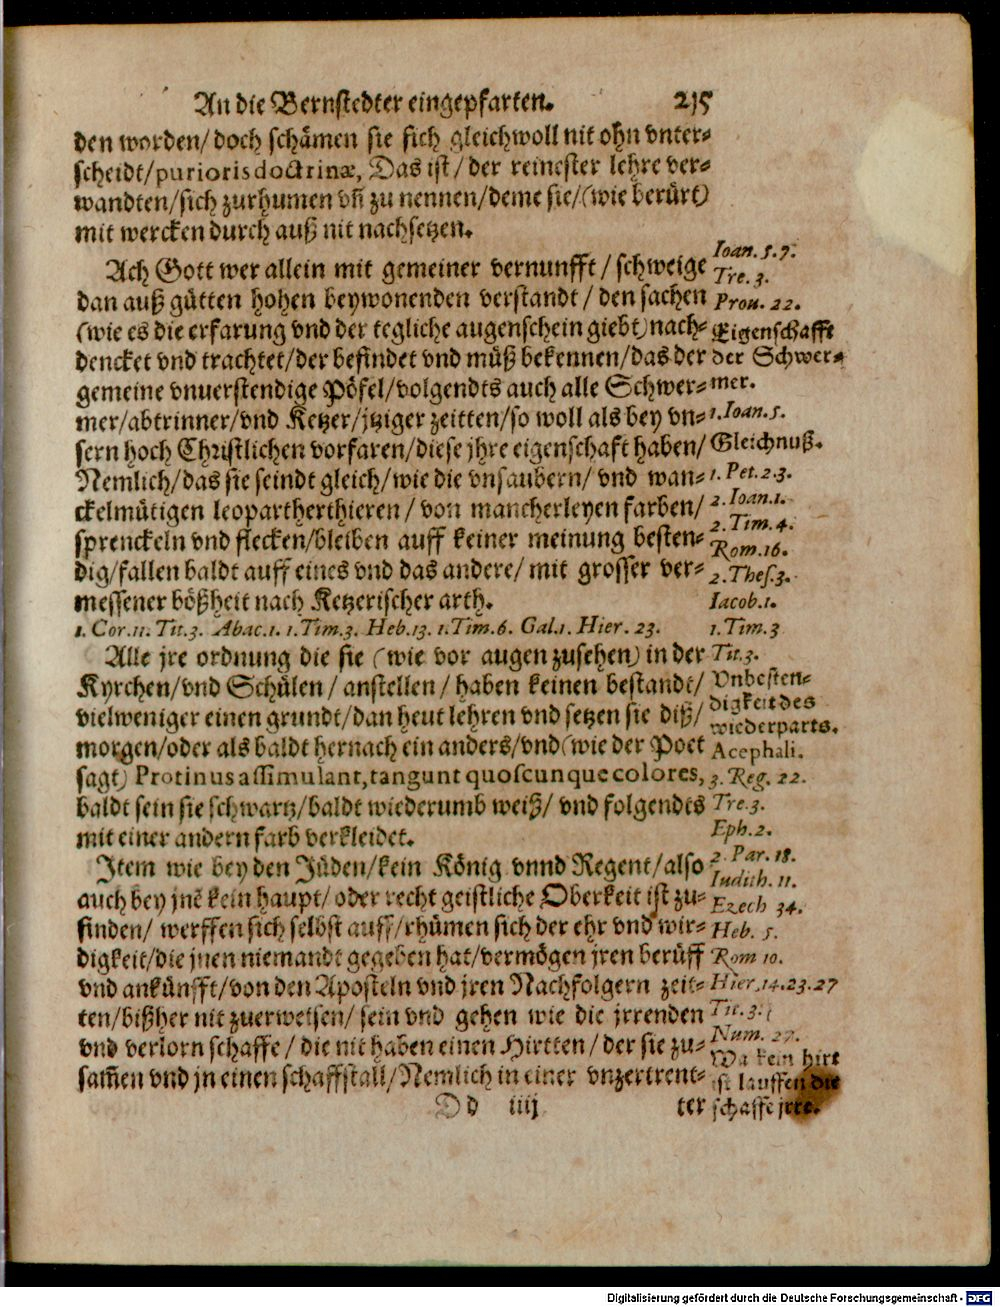 An die Bernstedter eingepfarten. 215
den worden/ doch schämen sie sich gleichwoll nit ohn vnter-
scheidt/ purioris doctrinæ, Das ist/ der reinester lehre ver-
wandten/ sich zurhumen vñ zu nennen/ deme sie/ (wie berürt)
mit wercken durch auß nit nachsetzen.
Ach Gott wer allein mit gemeiner vernunfft/ schweige
dan auß gütten hohen beywonenden verstandt/ den sachen
(wie es die erfarung vnd der tegliche augenschein giebt) nach-
dencket vnd trachtet/ der befindet vnd müß bekennen/ das der
gemeine vnuerstendige Pöfel/ volgendts auch alle Schwer-
mer/ abtrinner/ vnd Ketzer/ jtziger zeitten/ so woll als bey vn-
sern hoch Christlichen vorfaren/ diese jhre eigenschaft haben/
Nemlich/ das sie seindt gleich/ wie die vnsaubern/ vnd wan-
ckelmütigen leopartherthieren/ von mancherleyen farben/
sprenckeln vnd flecken/ bleiben auff keiner meinung besten-
dig/ fallen baldt auff eines vnd das andere/ mit grosser ver-
messener bößheit nach Ketzerischer arth.
1. Cor. 11. Tit. 3. Abac. 1. 1. Tim. 3. Heb. 13. 1. Tim. 6. Gal. 1. Hier. 23.
Alle jre ordnung die sie (wie vor augen zusehen) in der
Kyrchen/ vnd Schülen/ anstellen/ haben keinen bestandt/
vielweniger einen grundt/ dan heut lehren vnd setzen sie diß/
morgen/ oder als baldt hernach ein anders/ vnd (wie der Poet
sagt) Protinus assimulant, tangunt quoscunque colores,
baldt sein sie schwartz/ baldt wiederumb weiß/ vnd folgendts
mit einer andern farb verkleidet.
Item wie bey den Jüden/ kein König vnnd Regent/ also
auch bey jnẽ kein haupt/ oder recht geistliche Oberkeit ist zu-
finden/ werffen sich selbst auff/ rhümen sich der ehr vnd wir-
digkeit/ die jnen niemandt gegeben hat/ vermögen jren berüff
vnd ankünfft/ von den Aposteln vnd jren Nachfolgern zeit-
ten/ bißher nit zuerweisen/ sein vnd gehen wie die jrrenden
vnd verlorn schaffe/ die nit haben einen Hirtten/ der sie zu-
sam̃en vnd jn einen schaffstall/ Nemlich in einer vnzertrent-
Dd iiij ter
Ioan. 5. 7.
Tre. 3.
Prou. 22.
Eigenschafft
der Schwer-
mer.
1. Ioan. 5.
Gleichnuß.
1. Pet. 2. 3.
2. Ioan. 1.
2. Tim. 4.
Rom. 16.
2. Thes. 3.
Iacob. 1.
1. Tim. 3
Tit. 3.
Vnbesten-
digkeit des
wiederparts.
Acephali.
3. Reg. 22.
Tre. 3.
Eph. 2.
2. Par. 18.
Iudith. 11.
Ezech 34.
Heb. 5.
Rom 10.
Hier. 14. 23. 27
Tit. 3.
Num. 27.
Wa kein hirt
ist lauffen die
schaffe jrre.
Digitalisierung gefördert durch die Deutsche Forschungsgemeinschaft - DFG